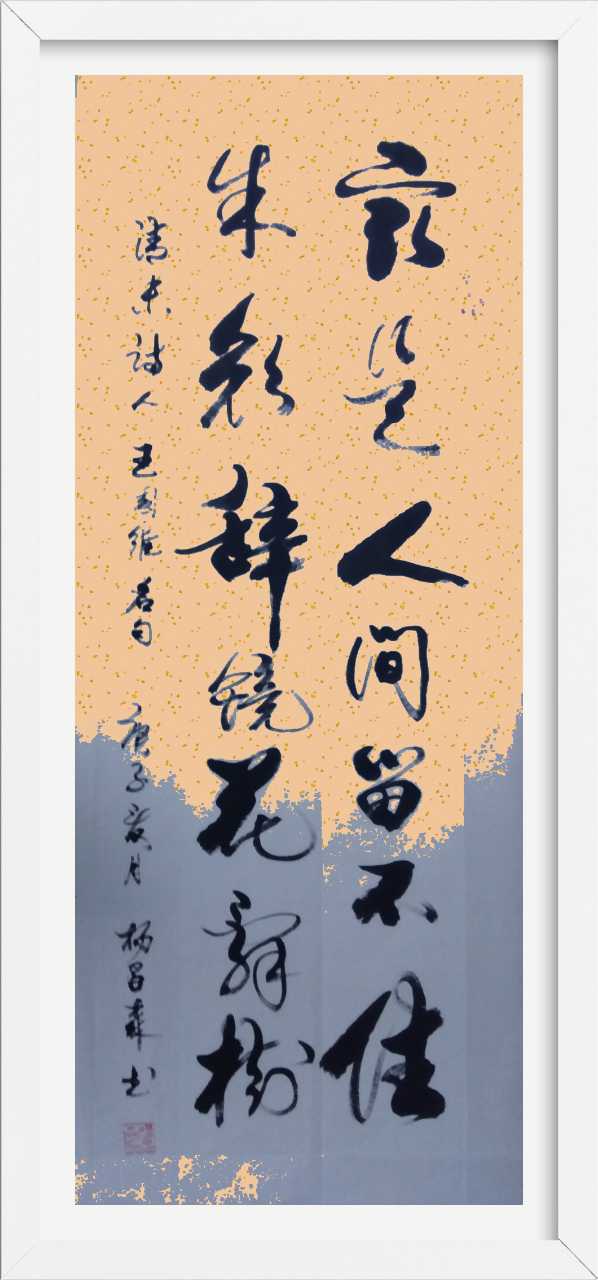 最是人间留不住
朱颜辞镜花辞树
清末诗人王国维名句 庚子夏月 杨昌书